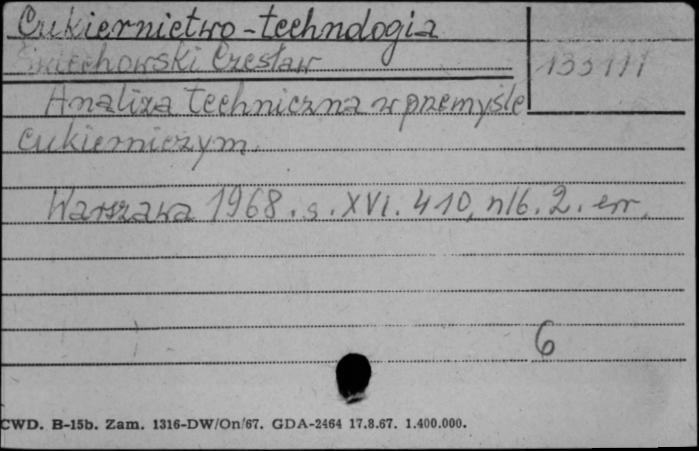 Cukiernictwo-technologia
Śmiechowski Czesław
133111
Analiza techniczna w przemyśle
cukierniczym.
Warszawa 1968. s. XVI. 410, nlb. 2. err.
6
CWD. B-15b. Zam. 1316-DW/On/67. GDA-2464 17.8.67. 1.400.000.